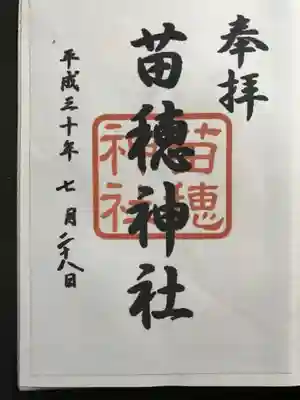 奉拝
苗穂神社
苗穂
神社
平成三十年 七月二十八日